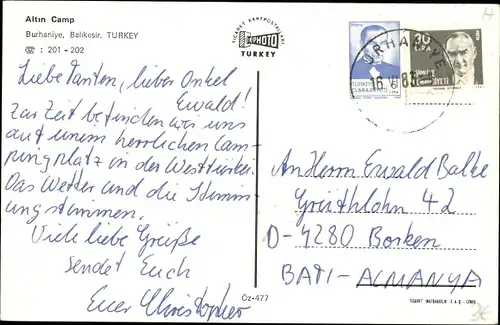 Altın Camp
Burhaniye, Balıkesir. TURKEY
☎ : 201 - 202
TİCARET KARTPOSTALLARI
PHOTO
TURKEY
Liebe Tanten, lieber Onkel
Ewald!
Zur Zeit befinden wir uns
auf einem herrlichen Cam-
pingplatz in der Westtürkei.
Das Wetter und die Stimm-
ung stimmen.
Viele liebe Grüße
sendet Euch
Euer Christopher
Öz-477
TÜRKİYE
CUMHURİYETİ
30
LİRA
An Herrn Ewald
D-4280 Borken
BATI-ALMANYA
TİCARET MATBAACILIK T.A.Ş. - İZMİR